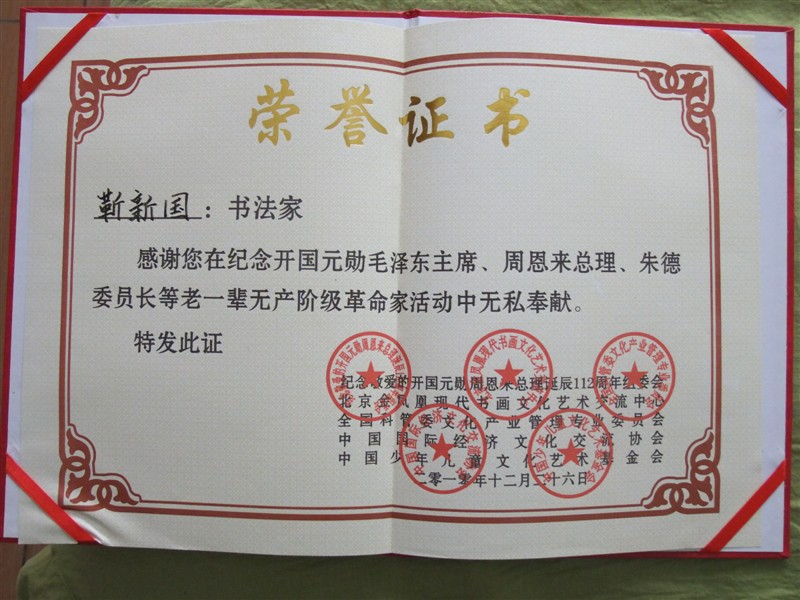 荣誉证书
靳新国：书法家
感谢您在纪念开国元勋毛泽东主席、周恩来总理、朱德
委员长等老一辈无产阶级革命家活动中无私奉献。
特发此证
纪念敬爱的开国元勋周恩来总理诞辰112周年组委会
北京金凤凰现代书画文化艺术交流中心
全国科管委文化产业管理专业委员会
中国国际经济文化交流协会
中国少年儿童文化艺术基金会
二零一零年十二月二十六日